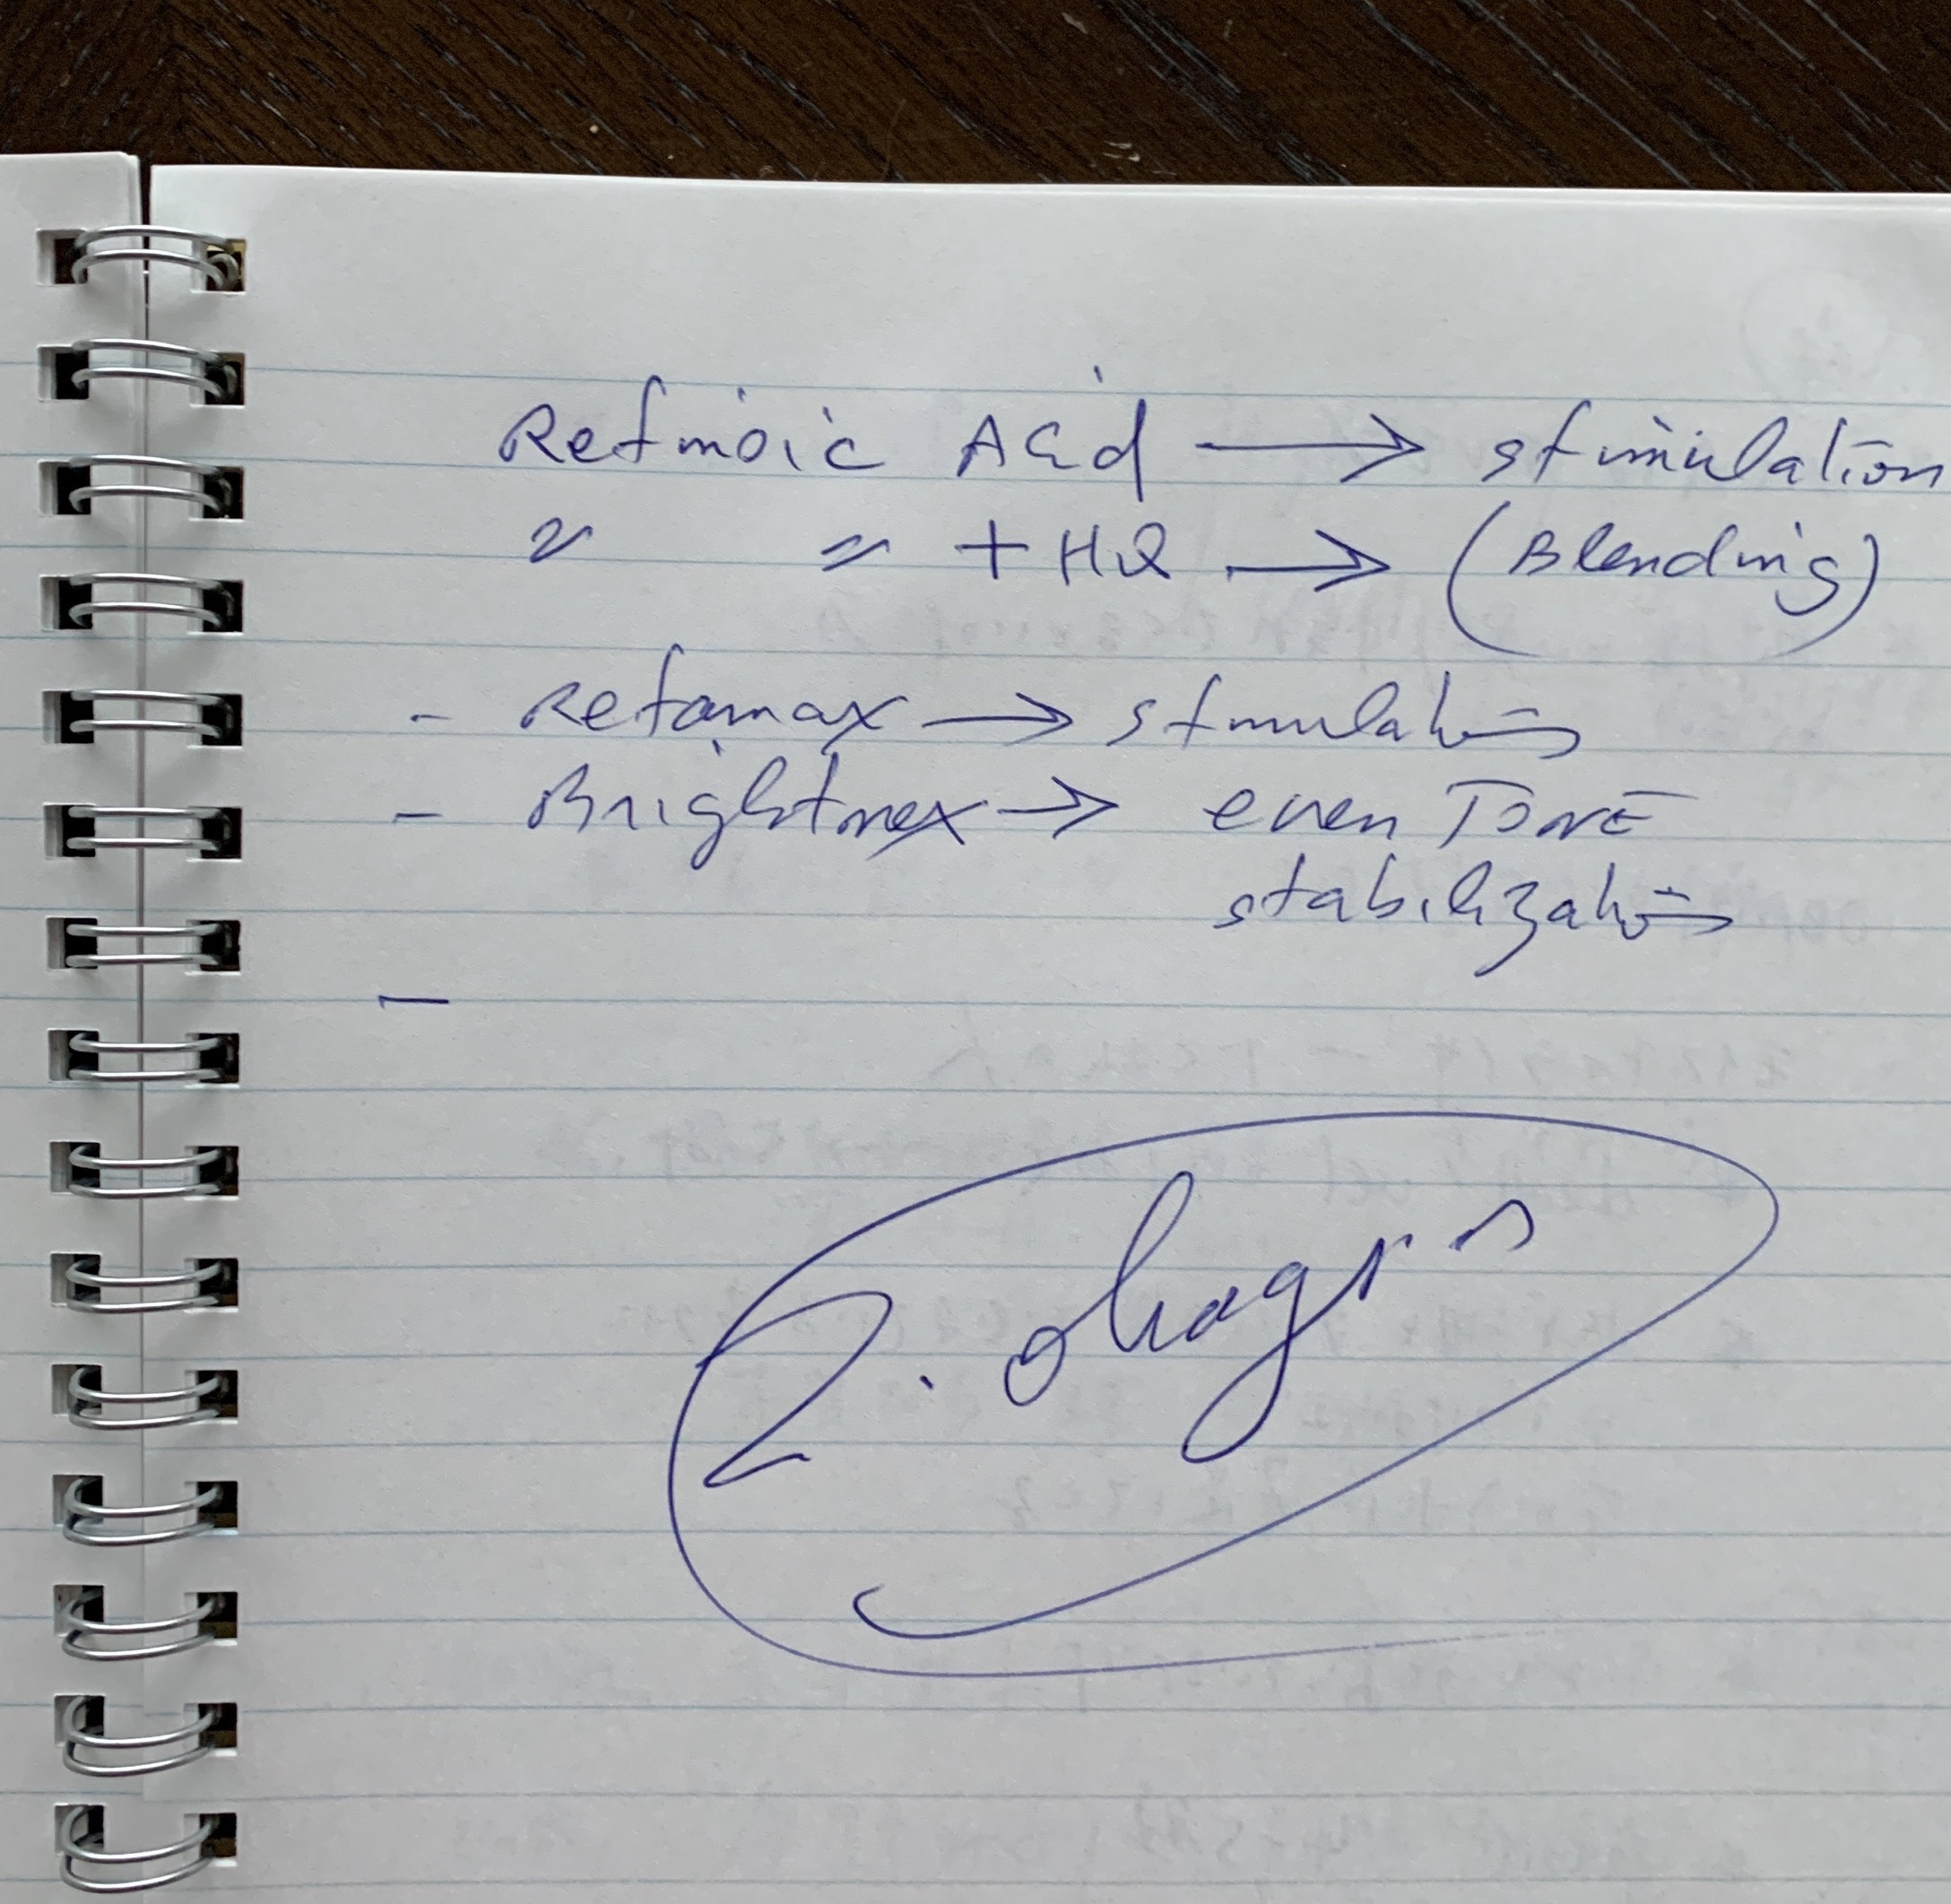 Retinoic Acid → stimulation
〃 〃 + HQ → (Blending)
- Retamax → stimulation
- Brightmax → even TONE
stabilization
-